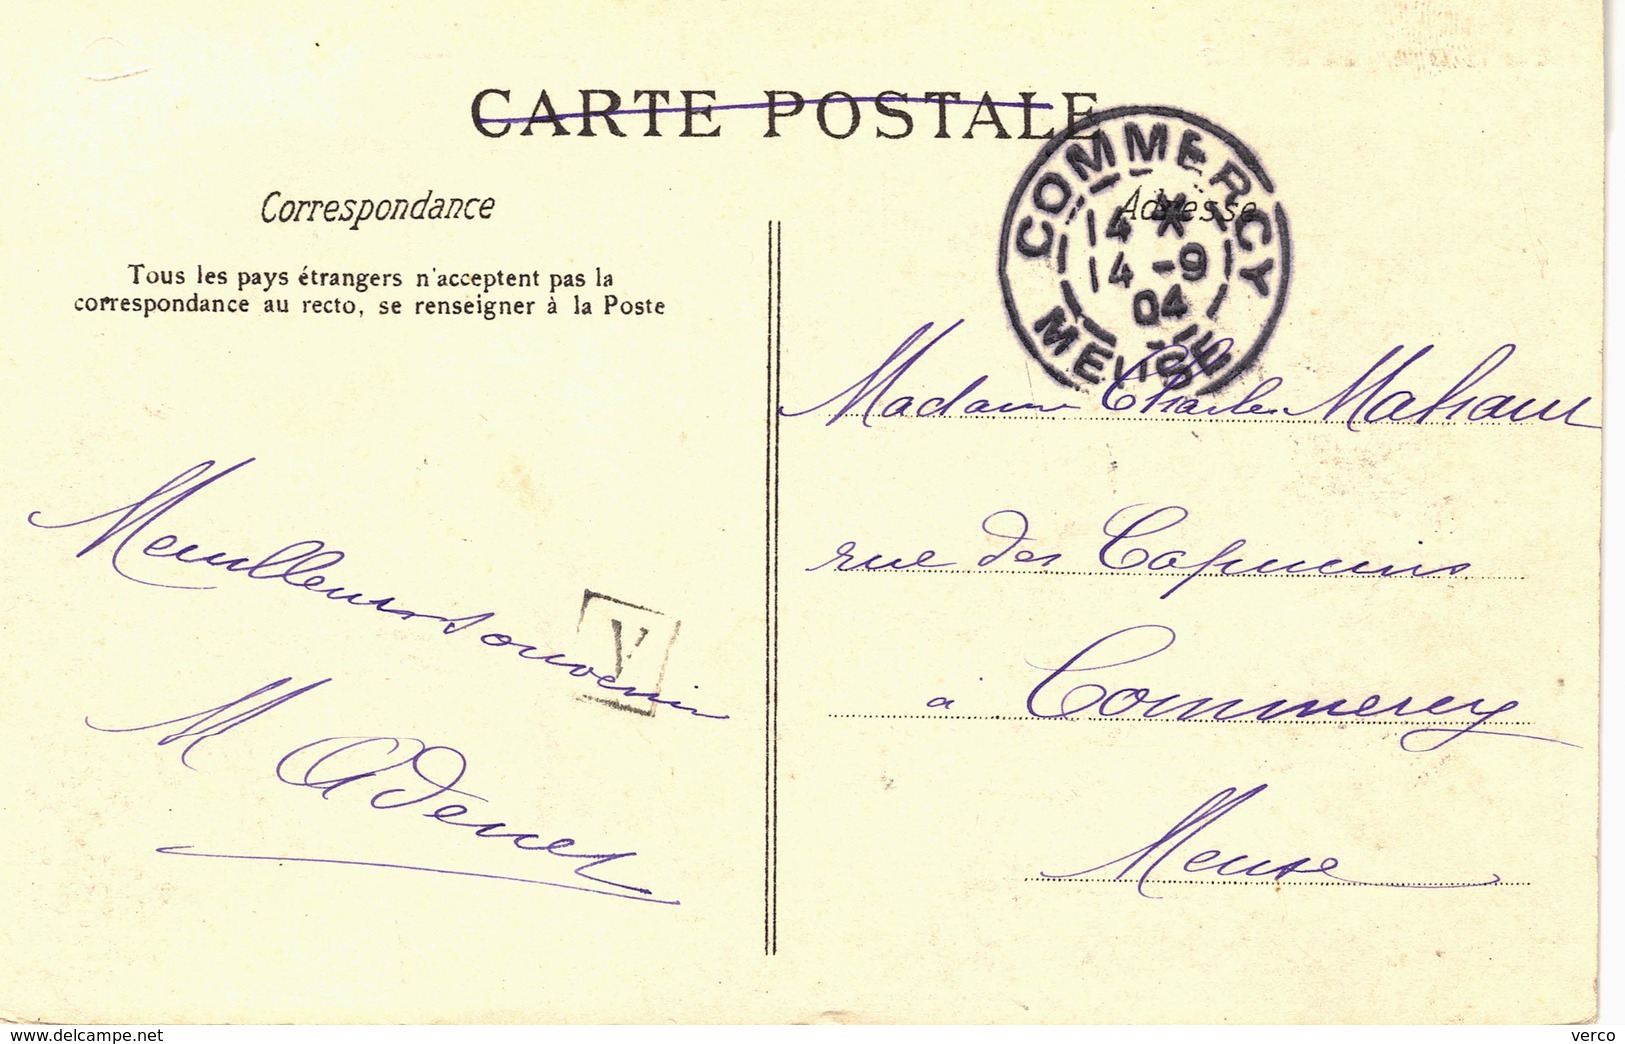 CARTE POSTALE
Correspondance
Adresse
Tous les pays étrangers n'acceptent pas la
correspondance au recto, se renseigner à la Poste
COMMERCY
14 *
14 -9
04
MEUSE
Madame Charles
rue des Capucins
à Commercy
Meuse
Meilleurs souvenir
V
M Adenet
http://www.delcampe.net
verco